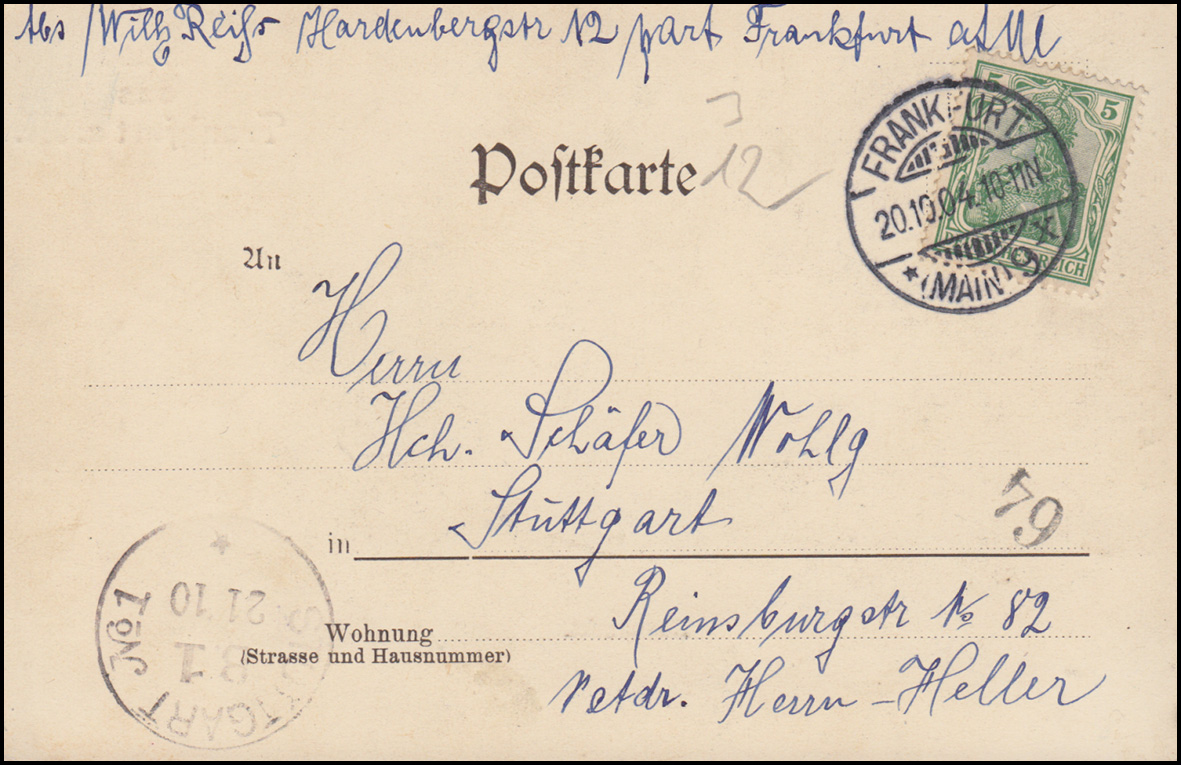 Abs / Wilh Reiss Hardenbergstr 12 part Frankfurt a/M
5 5
Postkarte
12
FRANKFURT
20.10.04.10-11N
* (MAIN) 9
REICH
An
Herrn
Hch. Schäfer Wohlg
in Stuttgart
64
Wohnung Reinsburgstr No 82
(Strasse und Hausnummer)
Herrn Heller
STUTTGART No 1
21 10